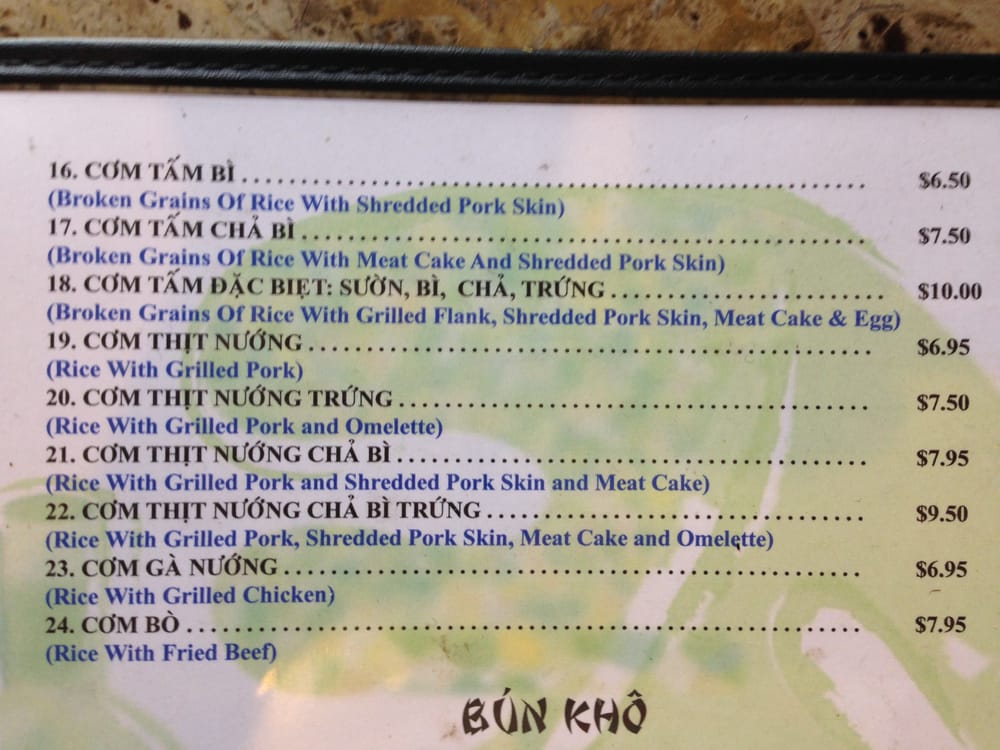 16. CƠM TẤM BÌ ........................................................ $6.50
(Broken Grains Of Rice With Shredded Pork Skin)
17. CƠM TẤM CHẢ BÌ ................................................... $7.50
(Broken Grains Of Rice With Meat Cake And Shredded Pork Skin)
18. CƠM TẤM ĐẶC BIỆT: SƯỜN, BÌ, CHẢ, TRỨNG ......................... $10.00
(Broken Grains Of Rice With Grilled Flank, Shredded Pork Skin, Meat Cake & Egg)
19. CƠM THỊT NƯỚNG ................................................... $6.95
(Rice With Grilled Pork)
20. CƠM THỊT NƯỚNG TRỨNG .......................................... $7.50
(Rice With Grilled Pork and Omelette)
21. CƠM THỊT NƯỚNG CHẢ BÌ .......................................... $7.95
(Rice With Grilled Pork and Shredded Pork Skin and Meat Cake)
22. CƠM THỊT NƯỚNG CHẢ BÌ TRỨNG .................................. $9.50
(Rice With Grilled Pork, Shredded Pork Skin, Meat Cake and Omelette)
23. CƠM GÀ NƯỚNG .................................................... $6.95
(Rice With Grilled Chicken)
24. CƠM BÒ ............................................................. $7.95
(Rice With Fried Beef)
BÚN KHÔ